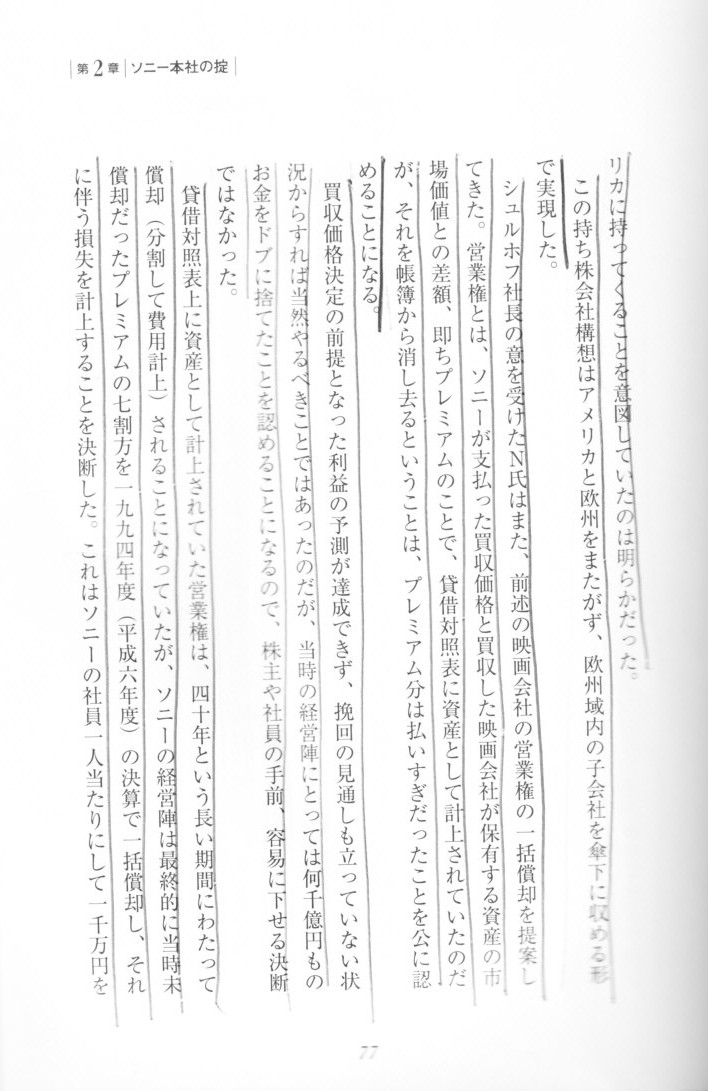 第2章 ソニー本社の掟
リカに持ってくることを意図していたのは明らかだった。
この持ち株会社構想はアメリカと欧州をまたがず、欧州域内の子会社を傘下に収める形
で実現した。
シュルホフ社長の意を受けたN氏はまた、前述の映画会社の営業権の一括償却を提案し
てきた。営業権とは、ソニーが支払った買収価格と買収した映画会社が保有する資産の市
場価値との差額、即ちプレミアムのことで、貸借対照表に資産として計上されていたのだ
が、それを帳簿から消し去るということは、プレミアム分は払いすぎだったことを公に認
めることになる。
買収価格決定の前提となった利益の予測が達成できず、挽回の見通しも立っていない状
況からすれば当然やるべきことではあったのだが、当時の経営陣にとっては何千億円もの
お金をドブに捨てたことを認めることになるので、株主や社員の手前、容易に下せる決断
ではなかった。
貸借対照表上に資産として計上されていた営業権は、四十年という長い期間にわたって
償却（分割して費用計上）されることになっていたが、ソニーの経営陣は最終的に当時未
償却だったプレミアムの七割方を一九九四年度（平成六年度）の決算で一括償却し、それ
に伴う損失を計上することを決断した。これはソニーの社員一人当たりにして一千万円を
77